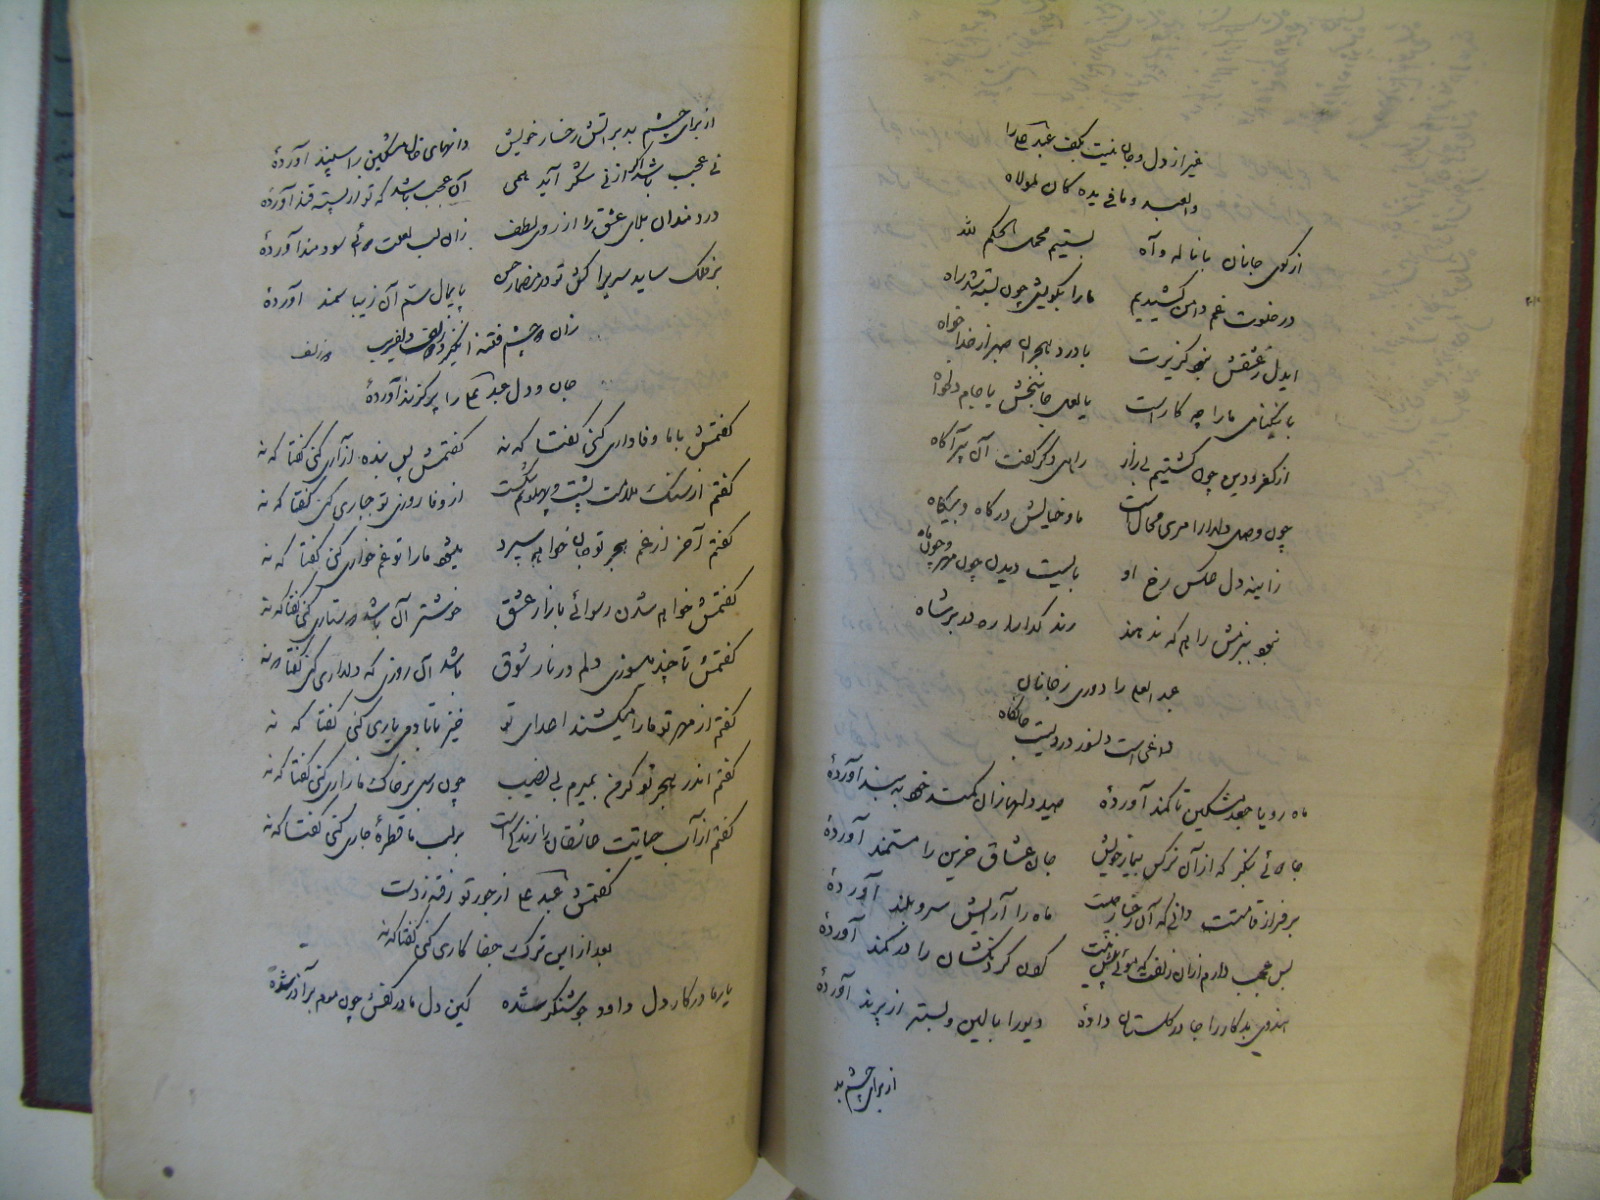 غیر از دل و جان نیست بکف عبد علی را
والعبد و ما فی یده کان لمولاه
از کوی جانان با ناله و آه بستیم محمل الحکم لله
در خلوت غم دامن کشیدیم ما را بکویش چون بسته شد راه
ایدل ز عشقش نبود گزیرت با درد هجران صبر از خدا خواه
با نیکنامی ما را چه کار است یا لعل جانبخش یا جام دلخواه
از کفر و دین چون گشتیم بی‌راز راهی دگر گفت آن پیر آگاه
چون وصل دلدار امری محال است ما و خیالش در گاه و بیگاه
زایینه دل عکس رخ او بایست دیدن چون مهر و چون ماه
نبود ببزمش راهم که ندهند رند گدا را ره در بر شاه
عبد العلی را دوری ز جانان
داغی است دلسوز دردیست جانکاه
ماه رویا جعد مشکین تا کمند آورده صید دلها زان کمند خود به بند آورده
بنگر که از آن نرگس بیمار خویش جان عشاق حزین را مستمند آورده
بر فراز قامتت دانی که آن رخسار چیست ماه را آرایش سرو بلند آورده
بس عجب دارم از آن زلفت که گردنکشان را در کمند آورده
هندوی بدکار را جا در گلستان داده دیو را بالین و بستر از پرند آورده
از برای چشم بد
از برای چشم بد بر آتش رخسار خویش دانهای خال مشکین را سپند آورده
نی عجب باشد اگر از نی شکر آید همی آن عجب باشد که تو از پسته قند آورده
دردمندان بلای عشق را از روی لطف زان لب لعلت سودمند آورده
بر فلک ساید سری را کش تو در مضمار حسن پایمال ستم آن زیبا سمند آورده
زان دو چشم فتنه انگیز و دلفریب
جان و دل عبد علی را پر گزند آورده
گفتمش با ما وفاداری کنی گفتا که نه گفتمش پس بنده آزاری کنی گفتا که نه
گفتم از سنگ ملامت پشت و پهلویم شکست از وفا روزی تو جباری کنی گفتا که نه
گفتم آخر از غم هجر تو جان خواهم سپرد هیچ ما را تو غمخواری کنی گفتا که نه
گفتمش خواهم شدن رسوای بازار عشق خوشتر آن باشد که ستاری کنی گفتا که نه
گفتمش تا چند میسوزی دلم در نار شوق باشد آن روزی که دلداری کنی گفتا که نه
گفتم از مهر تو ما را میکشند اعدای تو خیز تا با وی یاری کنی گفتا که نه
گفتم اندر هجر تو گر من بمیرم بی نصیب چون رسی بر خاک ما زاری کنی گفتا که نه
گفتم از آب حیاتت عاشقان را زندگی است بر لب ما قطرهٔ جاری کنی گفتا که نه
گفتمش عبد علی از جور تو رفته ز دست
بعد از این ترک جفا کاری کنی گفتا که نه
یار ما در کار دل داود جوشنگر شده کین دل ما در کفش چون موم بر آذر شده